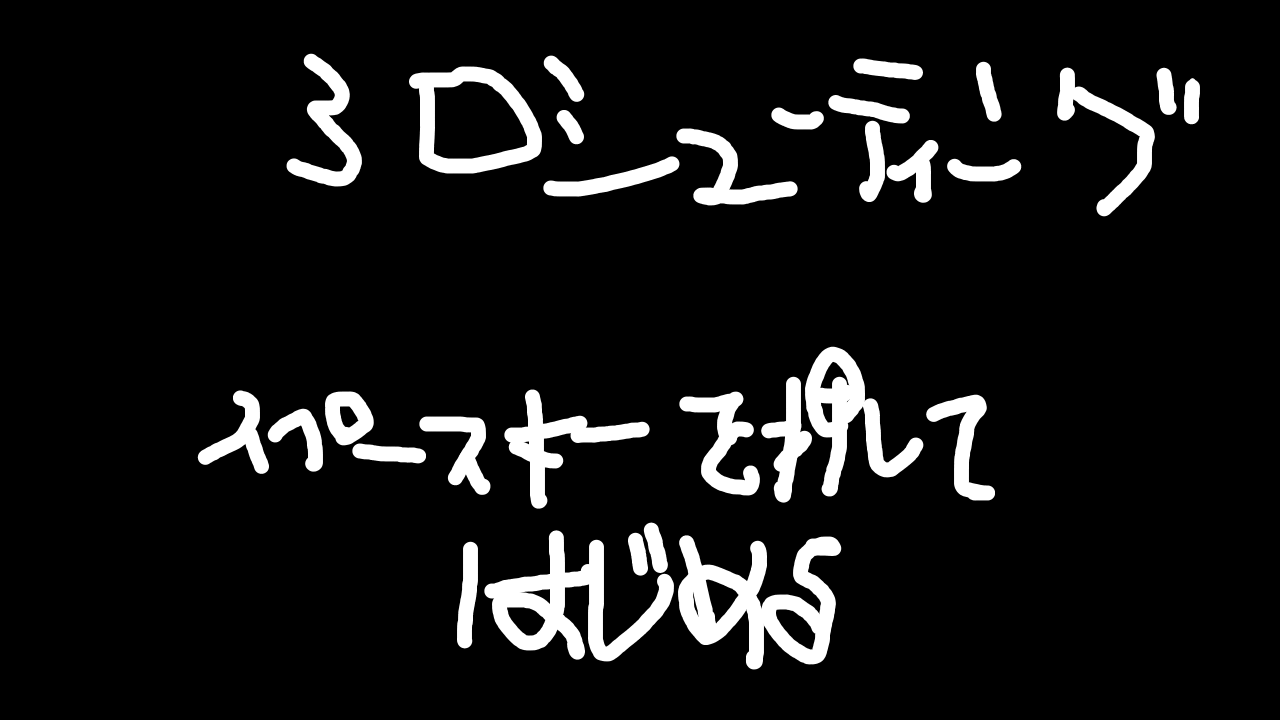 3Dシューティング
スペースキーを押して
はじめる